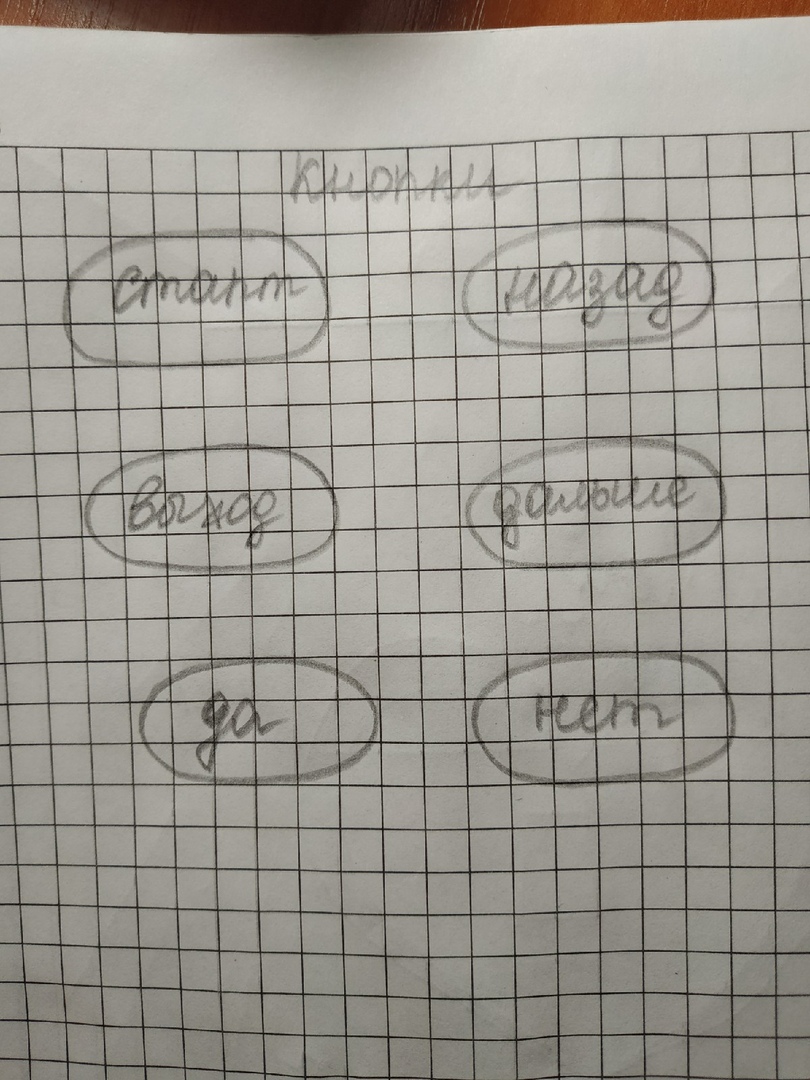 Кнопки
старт назад
выход дальше
да нет